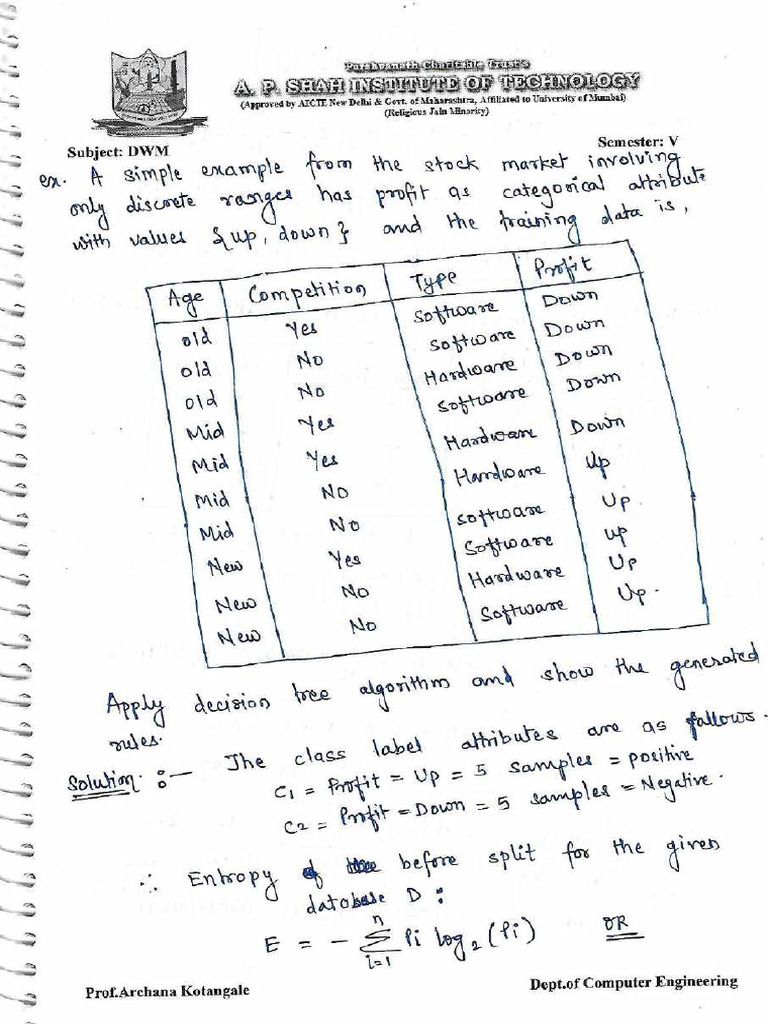 Parshvanath Charitable Trust's
A. P. SHAH INSTITUTE OF TECHNOLOGY
(Approved by AICTE New Delhi & Govt. of Maharashtra, Affiliated to University of Mumbai)
(Religious Jain Minority)
Subject: DWM Semester: V
ex. A simple example from the stock market involving
only discrete ranges has profit as categorical attribute
with values {up, down} and the training data is,
Age Competition Type Profit
old Yes Software Down
old No Software Down
old No Hardware Down
Mid Yes Software Down
Mid Yes Hardware Down
Mid No Hardware Up
Mid No software Up.
New Yes Software up
New No Hardware Up
New No Software Up.
Apply decision tree algorithm and show the generated
rules.
Solution :- The class label attributes are as follows.
C1 = Profit = Up = 5 samples = positive
C2 = Profit = Down = 5 samples = Negative.
∴ Entropy before split for the given
database D :
E = - n Σ i=1 Pi log2 (Pi) OR
Prof.Archana Kotangale Dept.of Computer Engineering